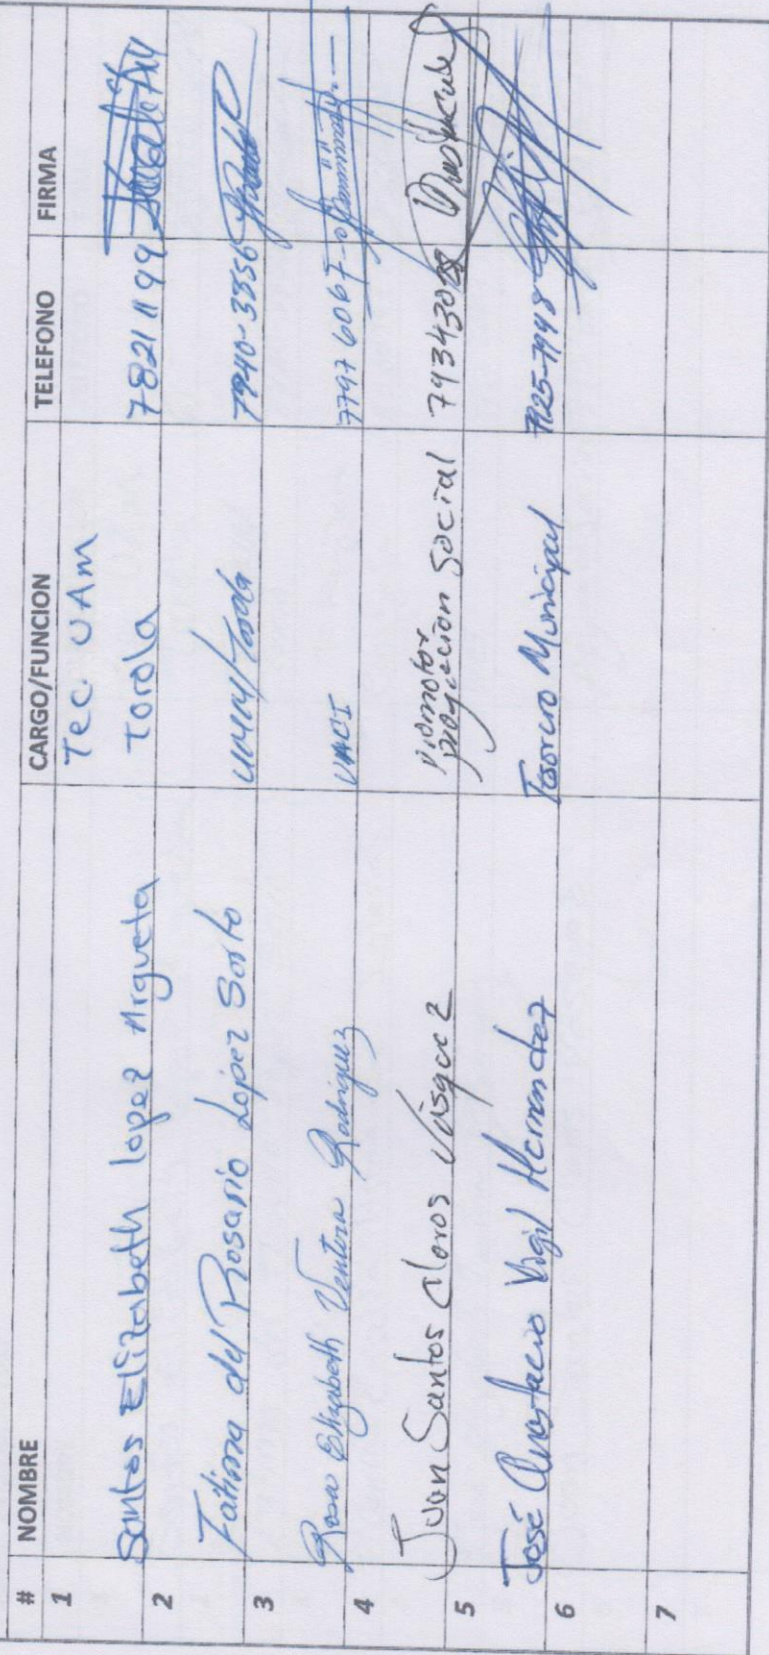 # NOMBRE CARGO/FUNCION TELEFONO FIRMA
1 Santos Elizabeth lopez Argueta Tec. UAm Torola 7821 11 99
2 Fatima del Rosario Lopez Sorto Torola 7940-3356
3 Rosa Elizabeth Ventura Rodriguez UACI 7797 6067
4 Juan Santos Claros Vásquez promotor proyeccion Social 79343028
5 José Anastacio Vigil Hernandez Tesorero Municipal 7125-7948
6
7